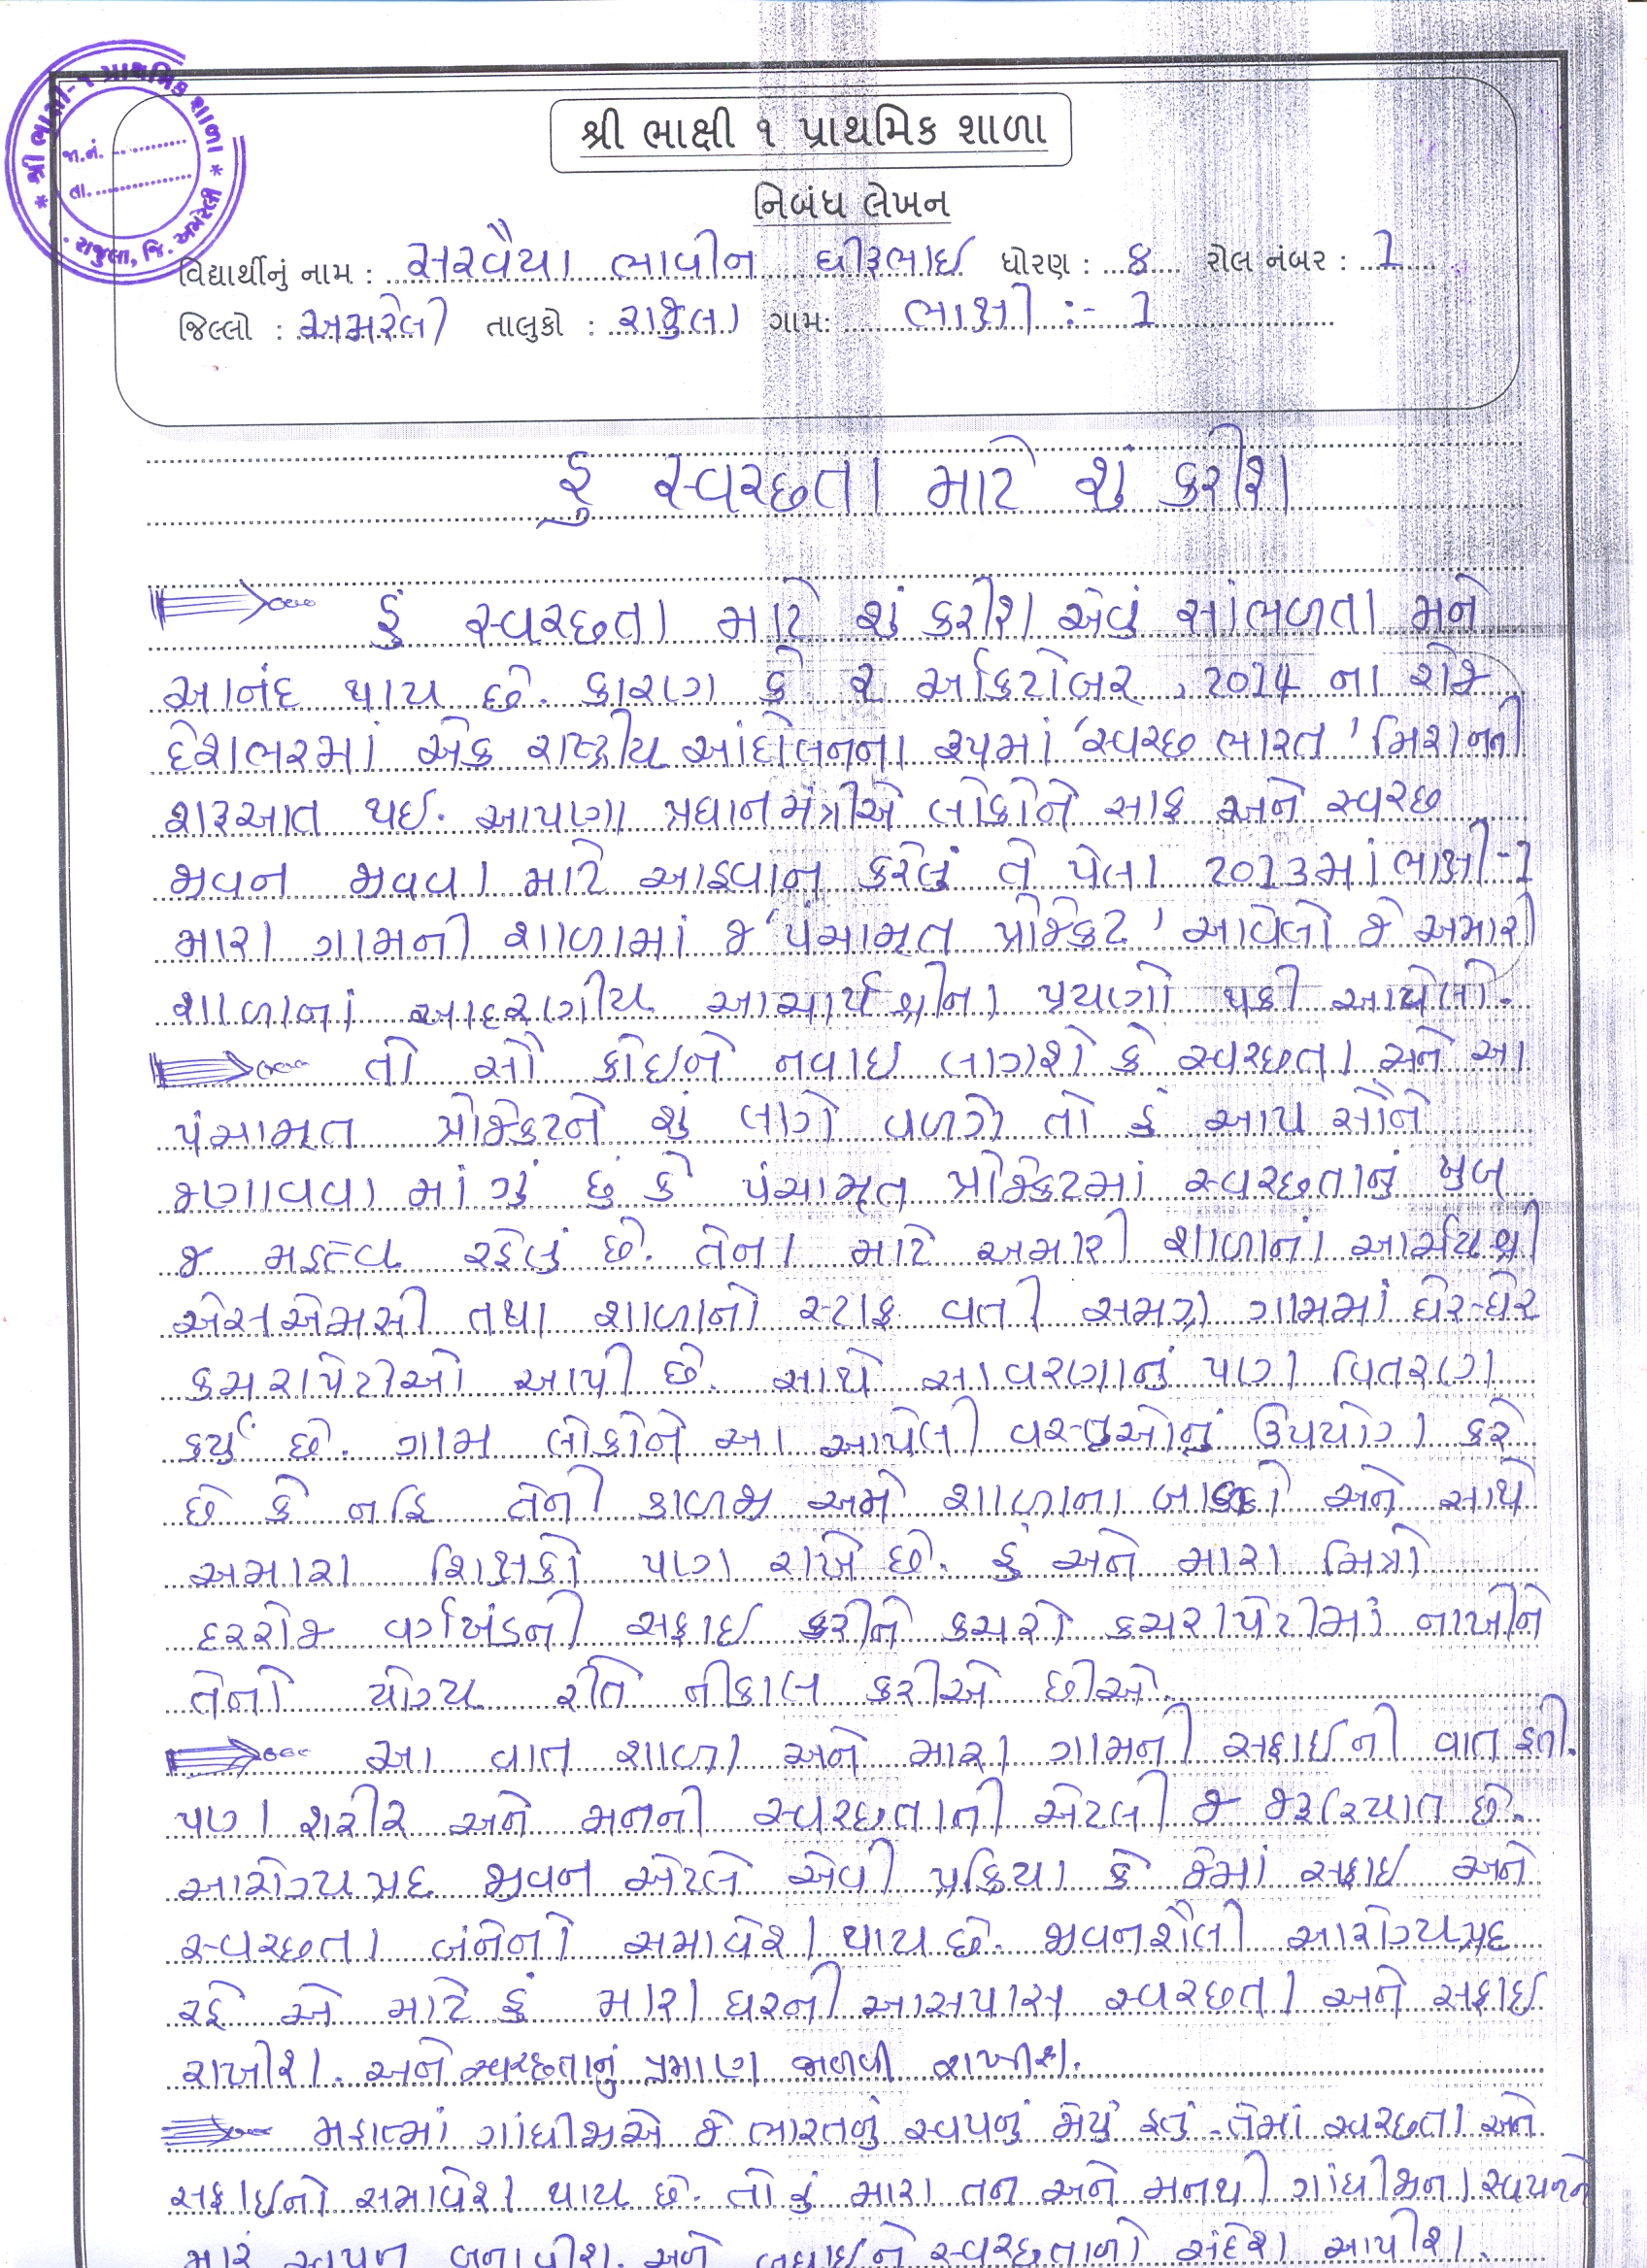 શ્રી ભાક્ષી-૧ પ્રાથમિક શાળા
જા.નં. ............
તા. ..................
રાજુલા, જિ. અમરેલી
શ્રી ભાક્ષી ૧ પ્રાથમિક શાળા
નિબંધ લેખન
વિદ્યાર્થીનું નામ : સરવૈયા ભાવીન ધીરૂભાઇ ધોરણ : ૪ રોલ નંબર : 1
જિલ્લો : અમરેલી તાલુકો : રાજુલા ગામ: ભાક્ષી :- 1
હુ સ્વચ્છતા માટે શું કરીશ
હું સ્વચ્છતા માટે શું કરીશ એવું સાંભળતા મને
આનંદ થાય છે. કારણ કે ૨ ઓકિટોબર, 2014 ના રોજ
દેશભરમાં એક રાષ્ટ્રીય આંદોલનના રૂપમાં 'સ્વચ્છ ભારત' મિશનની
શરૂઆત થઇ. આપણા પ્રધાનમંત્રીએ લોકોને સાફ અને સ્વચ્છ
જીવન જીવવા માટે આહવાન કરેલું તે પેલા 2013માં ભાક્ષી-1
મારા ગામની શાળામાં જ 'પંચામૃત પ્રોજેકટ' આવેલો જે અમારી
શાળાનાં આદરણીય આચાર્ય શ્રીના પ્રયણો થકી આવેલો.
તો સૌ કોઇને નવાઇ લાગશે કે સ્વચ્છતા અને આ
પંચામૃત પ્રોજેકટને શું લાગે વળગે તો હું આપ સૌને
જણાવવા માંગું છું કે પંચામૃત પ્રોજેકટમાં સ્વચ્છતાનું ખુબ
જ મહત્વ રહેલું છે. તેના માટે અમારી શાળાનાં આર્ચાયશ્રી
એસએમસી તથા શાળાનો સ્ટાફ વતી સમગ્ર ગામમાં ઘેર-ઘેર
કચરાપેટીઓ આપી છે. સાથે સાવરણાનું પણ વિતરણ
કર્યું છે. ગામ લોકોને આ આપેલી વસ્તુઓનું ઉપયોગ કરે
છે કે નહિ તેની કાળજી અમે શાળાના બાળકો અને સાથે
અમારા શિક્ષકો પણ રાખે છે. હું અને મારા મિત્રો
દરરોજ વર્ગખંડની સફાઇ કરીને કચરો કચરાપેટીમાં નાખીને
તેનો યોગ્ય રીતે નીકાલ કરીએ છીએ.
આ વાત શાળા અને મારા ગામની સફાઇની વાત હતી.
પણ શરીર અને મનની સ્વચ્છતાની એટલી જ જરૂરિયાત છે.
આરોગ્ય પ્રદ જીવન એટલે એવી પ્રક્રિયા કે જેમાં સફાઇ અને
સ્વચ્છતા બંનેનો સમાવેશ થાય છે. જીવનશૈલી આરોગ્યપ્રદ
રહે એ માટે હું મારા ઘરની આસપાસ સ્વચ્છતા અને સફાઇ
રાખીશ. અને સ્વચ્છતાનું પ્રમાણ જાળવી રાખીશ.
મહાત્માં ગાંધીજીએ જે ભારતનું સ્વપનું જોયું હતું. તેમાં સ્વચ્છતા અને
સફાઇનો સમાવેશ થાય છે. તો હું મારા તન અને મનથી ગાંધીજીના સ્વપનને
મારૂં સ્વપન બનાવીશ. અને બધાઇને સ્વચ્છતાનો સંદેશ આપીશ.